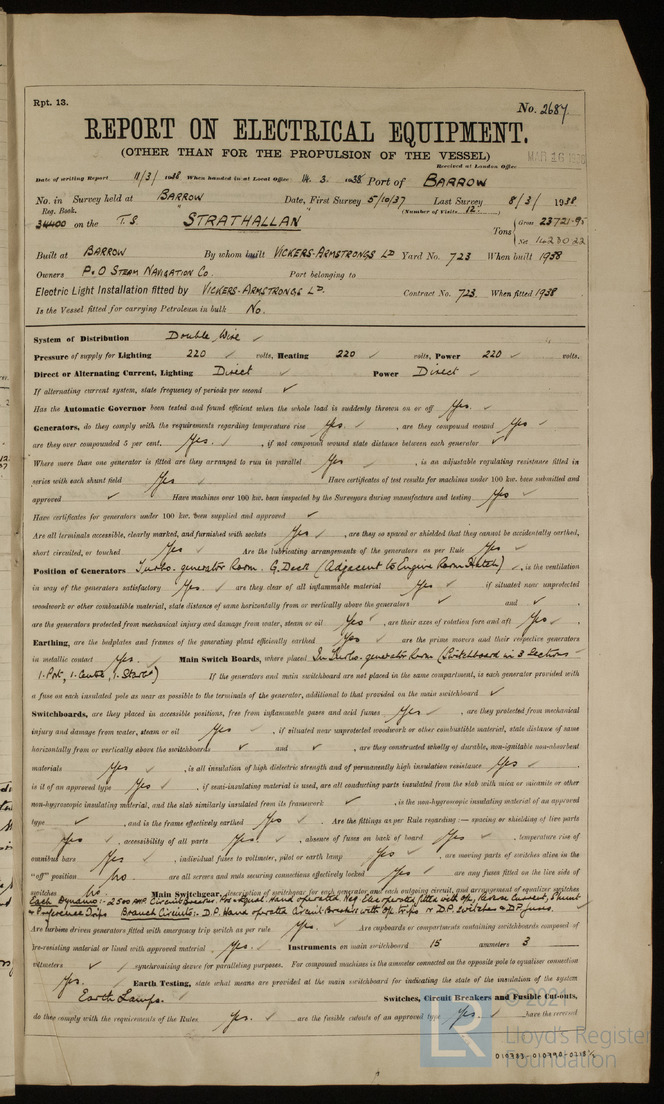 Rpt. 13.
No. 2687
REPORT ON ELECTRICAL EQUIPMENT.
(OTHER THAN FOR THE PROPULSION OF THE VESSEL)
Received at London Office
MAR 16 1938
Date of writing Report 11/3/1938 When handed in at Local Office 14. 3. 1938 Port of BARROW
No. in Survey held at BARROW Date, First Survey 5/10/37 Last Survey 8/3/1938
Reg. Book. (Number of Visits 12.)
34400 on the T.S. "STRATHALLAN" Tons { Gross 23721.95
Net 14230.22
Built at BARROW By whom built VICKERS-ARMSTRONGS LD Yard No. 723 When built 1938
Owners P & O STEAM NAVIGATION Co. Port belonging to
Electric Light Installation fitted by VICKERS-ARMSTRONGS LD. Contract No. 723. When fitted 1938
Is the Vessel fitted for carrying Petroleum in bulk No.
System of Distribution Double Wire ✓
Pressure of supply for Lighting 220 ✓ volts, Heating 220 ✓ volts, Power 220 ✓ volts.
Direct or Alternating Current, Lighting Direct ✓ Power Direct ✓
If alternating current system, state frequency of periods per second ✓
Has the Automatic Governor been tested and found efficient when the whole load is suddenly thrown on or off Yes. ✓
Generators, do they comply with the requirements regarding temperature rise Yes. ✓, are they compound wound Yes ✓
are they over compounded 5 per cent. Yes. ✓, if not compound wound state distance between each generator ✓
Where more than one generator is fitted are they arranged to run in parallel Yes ✓, is an adjustable regulating resistance fitted in
series with each shunt field Yes ✓ Have certificates of test results for machines under 100 kw. been submitted and
approved ✓ Have machines over 100 kw. been inspected by the Surveyors during manufacture and testing Yes ✓
Have certificates for generators under 100 kw. been supplied and approved ✓
Are all terminals accessible, clearly marked, and furnished with sockets Yes ✓, are they so spaced or shielded that they cannot be accidentally earthed,
short circuited, or touched Yes ✓ Are the lubricating arrangements of the generators as per Rule Yes ✓
Position of Generators Turbo. generator Room. G. Deck (Adjacent to Engine Room Hatch) ✓, is the ventilation
in way of the generators satisfactory Yes. ✓ are they clear of all inflammable material Yes ✓ if situated near unprotected
woodwork or other combustible material, state distance of same horizontally from or vertically above the generators ✓ and ✓
are the generators protected from mechanical injury and damage from water, steam or oil Yes ✓, are their axes of rotation fore and aft Yes ✓
Earthing, are the bedplates and frames of the generating plant efficiently earthed Yes ✓ are the prime movers and their respective generators
in metallic contact Yes. ✓ Main Switch Boards, where placed In Turbo. generator Room (Switchboard in 3 Sections
1. Port, 1. Centre, 1. Starbd) If the generators and main switchboard are not placed in the same compartment, is each generator provided with
a fuse on each insulated pole as near as possible to the terminals of the generator, additional to that provided on the main switchboard ✓
Switchboards, are they placed in accessible positions, free from inflammable gases and acid fumes Yes ✓, are they protected from mechanical
injury and damage from water, steam or oil Yes ✓, if situated near unprotected woodwork or other combustible material, state distance of same
horizontally from or vertically above the switchboards ✓ and ✓, are they constructed wholly of durable, non-ignitable non-absorbent
materials Yes ✓, is all insulation of high dielectric strength and of permanently high insulation resistance Yes ✓
is it of an approved type Yes ✓, if semi-insulating material is used, are all conducting parts insulated from the slab with mica or micanite or other
non-hygroscopic insulating material, and the slab similarly insulated from its framework ✓, is the non-hygroscopic insulating material of an approved
type ✓, and is the frame effectively earthed Yes ✓ Are the fittings as per Rule regarding:— spacing or shielding of live parts
Yes ✓, accessibility of all parts Yes. ✓, absence of fuses on back of board Yes ✓, temperature rise of
omnibus bars Yes ✓, individual fuses to voltmeter, pilot or earth lamp Yes ✓, are moving parts of switches alive in the
"off" position No ✓ are all screws and nuts securing connections effectively locked Yes ✓ are any fuses fitted on the live side of
switches No. ✓ Main Switchgear, description of switchgear for each generator and each outgoing circuit, and arrangement of equaliser switches
Each Dynamo:- 2500 AMP. Circuit Breaker. Pos & Equal. Hand operated. Neg. Elec operated fitted with O/L, Reverse Current, Shunt
& Preference Trips Branch Circuits. D.P. Hand operated Circuit Breakers with O/L Trips & D.P. Switches & D.P. fuses.
Are turbine driven generators fitted with emergency trip switch as per rule Yes. Are cupboards or compartments containing switchboards composed of
fire-resisting material or lined with approved material Yes. ✓ Instruments on main switchboard 15 ammeters 3
voltmeters ✓ synchronising device for paralleling purposes. For compound machines is the ammeter connected on the opposite pole to equaliser connection
Yes. ✓ Earth Testing, state what means are provided at the main switchboard for indicating the state of the insulation of the system
Earth Lamps. Switches, Circuit Breakers and Fusible Cut-outs,
do they comply with the requirements of the Rules Yes. ✓ are the fusible cutouts of an approved type Yes. ✓ have the reversed
© 2021
LR
Lloyd's Register
Foundation